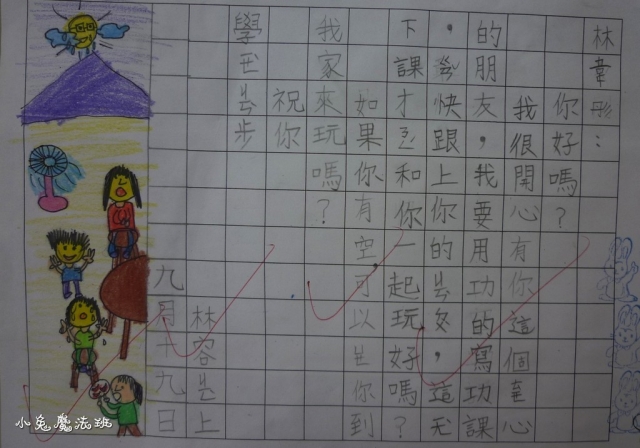 林韋彤：
你好嗎？
我很開心有你這個心
的朋友，我要用功的寫功課
，快跟上你的，這
下課才和你一起玩好嗎？
如果你有空可以你到
我家來玩嗎？
祝你
學步
林容上
九月十九日
小兔魔法班